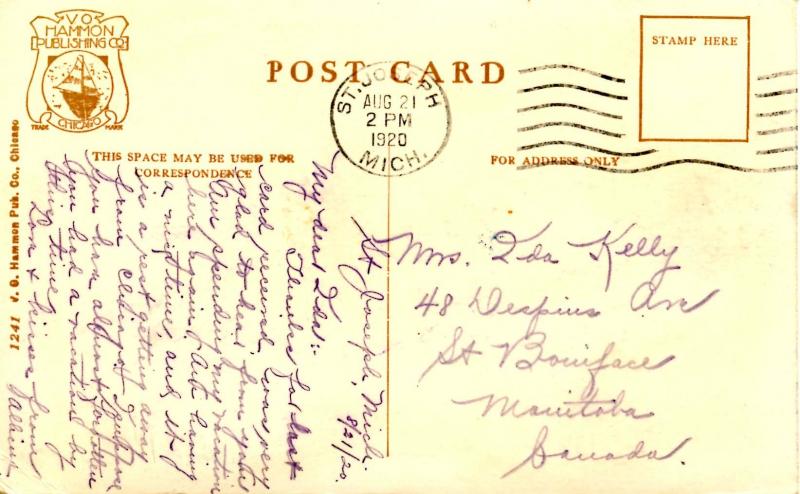 V O
HAMMON
PUBLISHING CO
TRADE MARK
CHICAGO
POST CARD
ST. JOSEPH
AUG 21
2 PM
1920
MICH.
STAMP HERE
THIS SPACE MAY BE USED FOR
CORRESPONDENCE
FOR ADDRESS ONLY
1241 V. O. Hammon Pub. Co., Chicago
St Joseph, Mich.
8/21/20.
My dear Ida:-
Thanks for last
card received, was very
glad to hear from you.
Am spending my vacation
here again. Am having
a nice time and it
is a rest getting away
from
you have almost forgotten
you had a vacation by
this time
Love & kisses from
Mrs. Ida Kelly
48 Despins Ave
St Boniface
Manitoba
Canada.